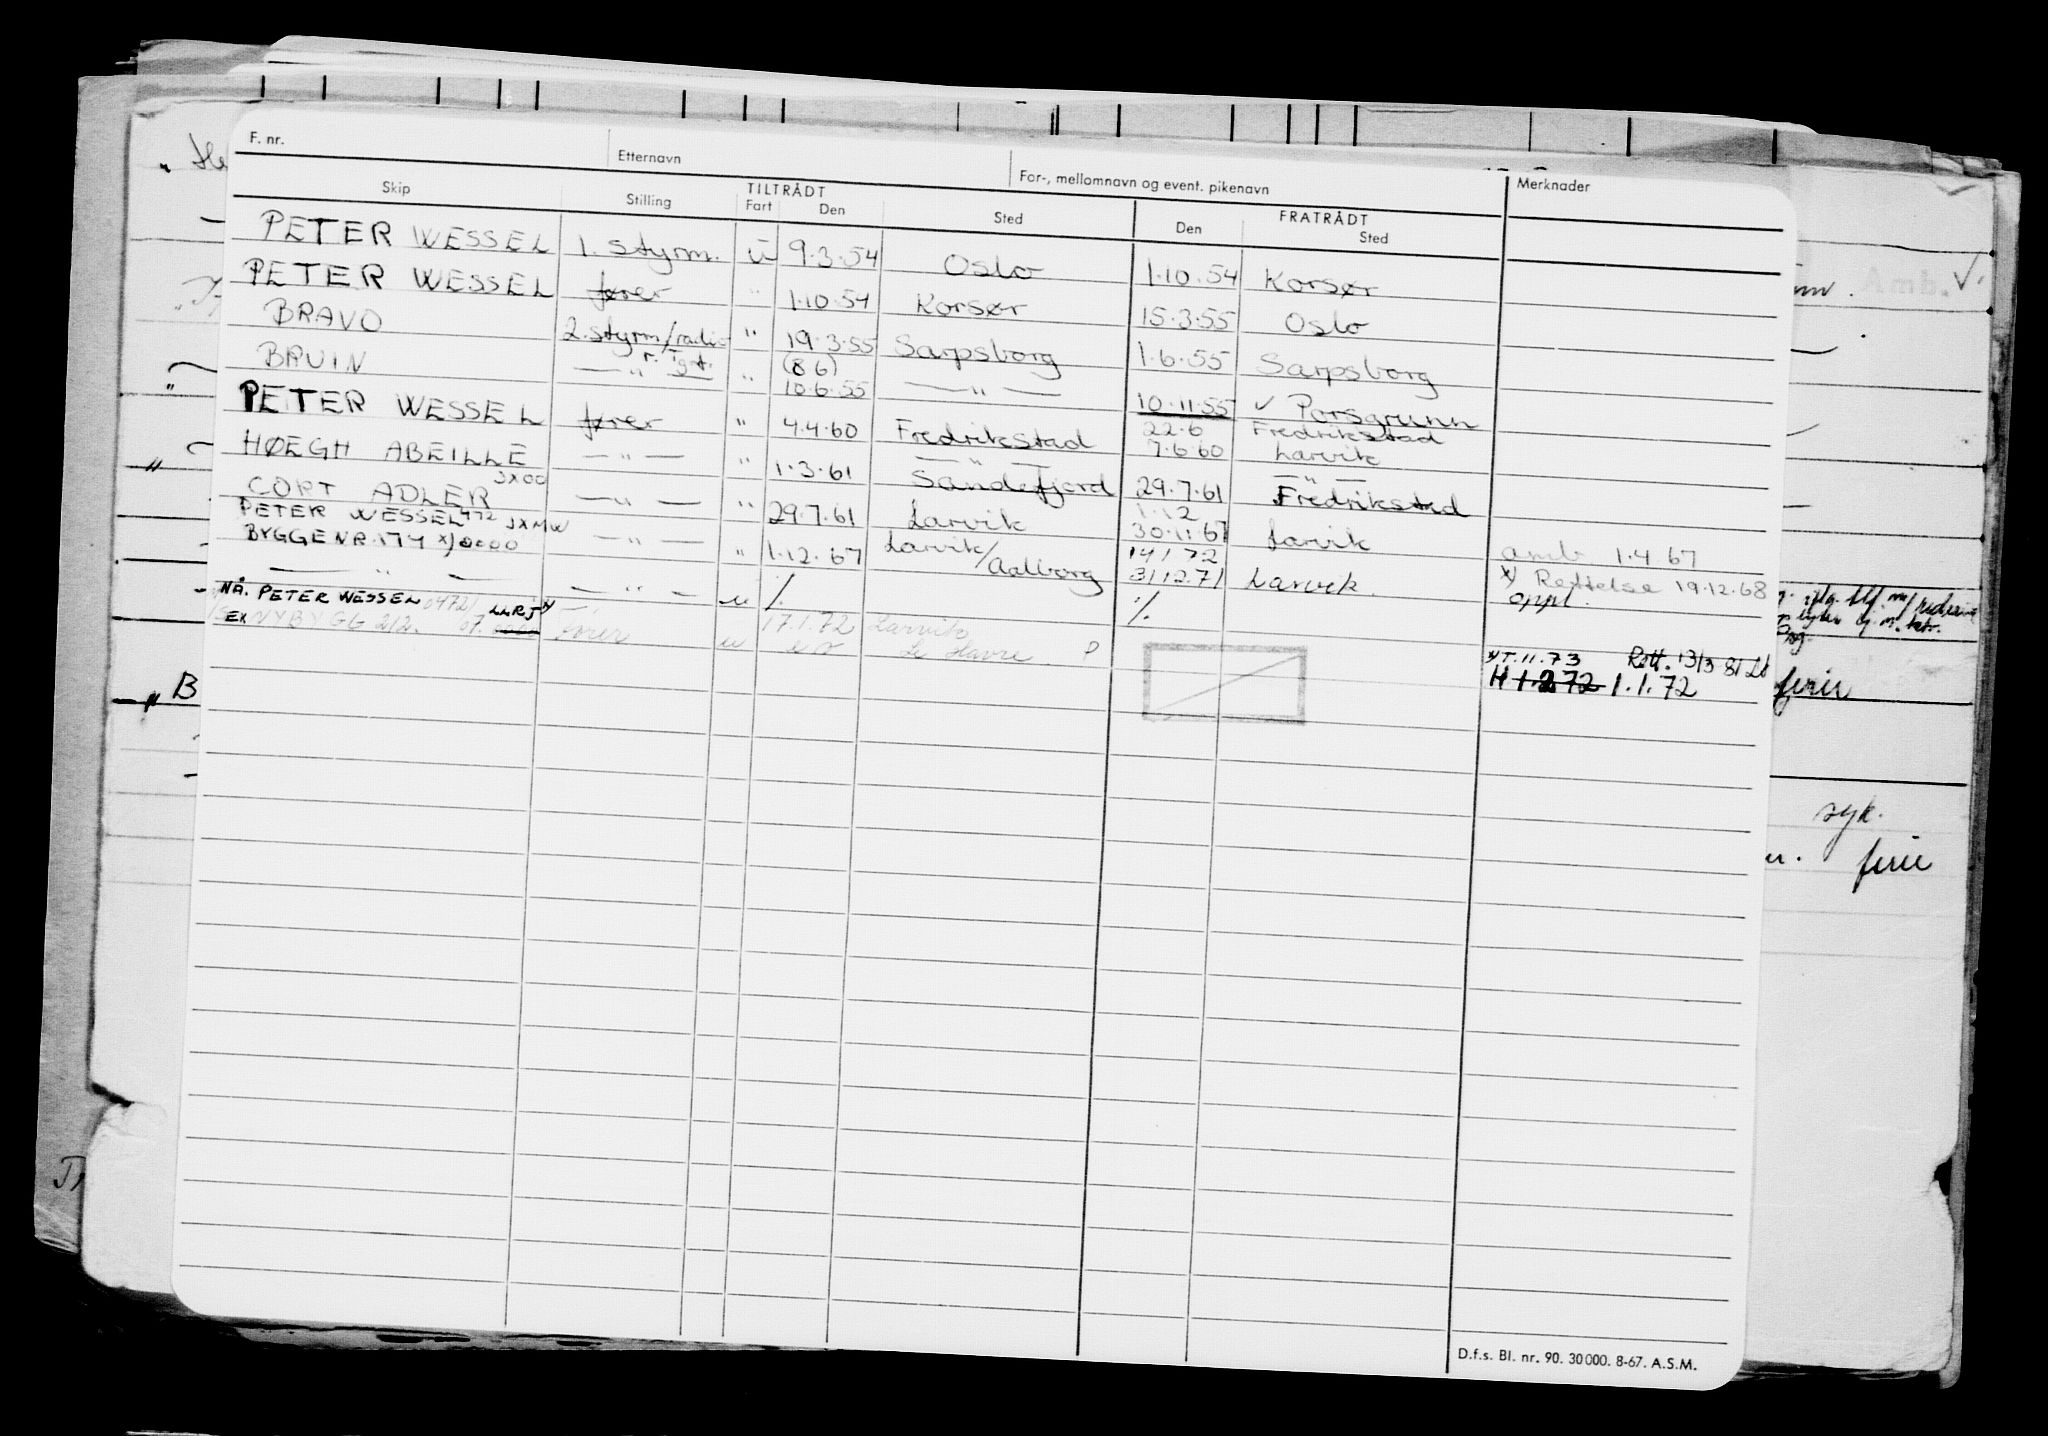 F. nr. Etternavn For-, mellomnavn og event. pikenavn Merknader
Skip Stilling TILTRÅDT Fart Den Sted FRATRÅDT Den Sted
PETER WESSEL 1. styrm. u 9.3.54 Oslo 1.10.54 Korsør
PETER WESSEL fører " 1.10.54 Korsør 15.3.55 Oslo
BRAVO 2. styrm/radio " 19.3.55 Sarpsborg 1.6.55 Sarpsborg
r. Tgt. (86)
BRUIN — " — " 10.6.55 — " — 10.11.55 ✓ Porsgrunn
PETER WESSEL fører " 4.4.60 Fredrikstad 22.6 Fredrikstad
7.6.60 Larvik
HØEGH ABEILLE — " — " 1.3.61 — " — Sandefjord 29.7.61 — " — Fredrikstad
JXOO
CORT ADLER — " — " 29.7.61 Larvik 1.12
PETER WESSEL 472 JXMW 30.11.67 Larvik
BYGGENR. 174 x) 0000 — " — " 1.12.67 Larvik/Aalborg 14.1.72 amb 1.4 67
— " — — " — u ./. 31.12.71 Larvik x) Rettelse 19.12.68
NÅ. PETER WESSEL 0472 LLRJ x) ./. oppl.
EX NYBYGG 212. 07. 0000 Fører 17.1.72 Larvik
u Le Havre P
x) T. 11. 73 Rett. 13/3 81
H 1.2 72 1.1.72
Amb. ✓.
" B
ferier
syk.
ferie
D.f.s. Bl. nr. 90. 30000. 8-67. A.S.M.